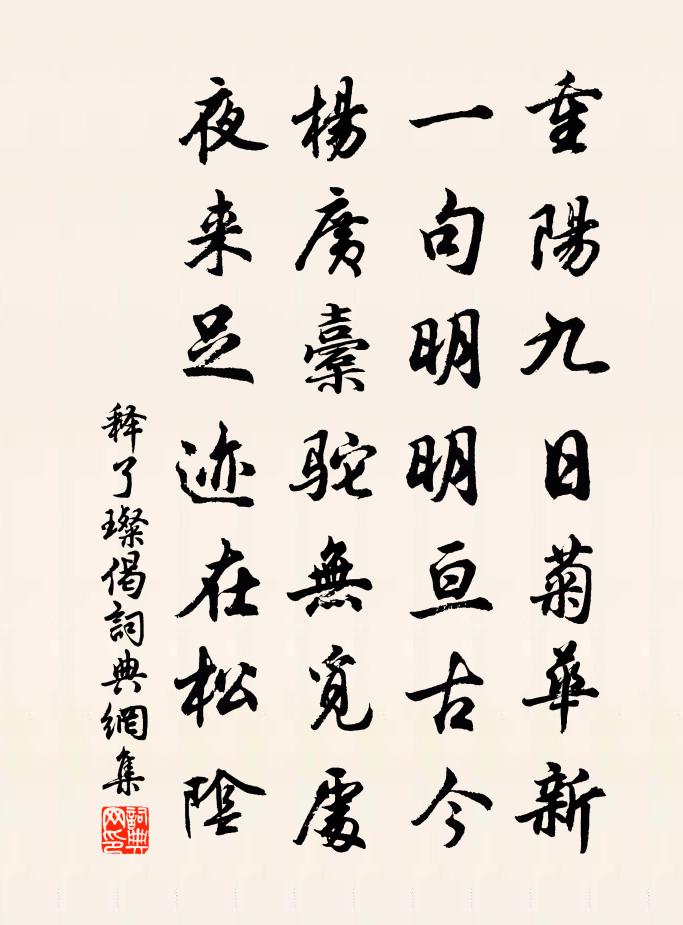 重陽九日菊華新
一句明明亘古今
楊廣橐駝無覓處
夜来足迹在松陰
释了璨偈詞典網集
詞典网印